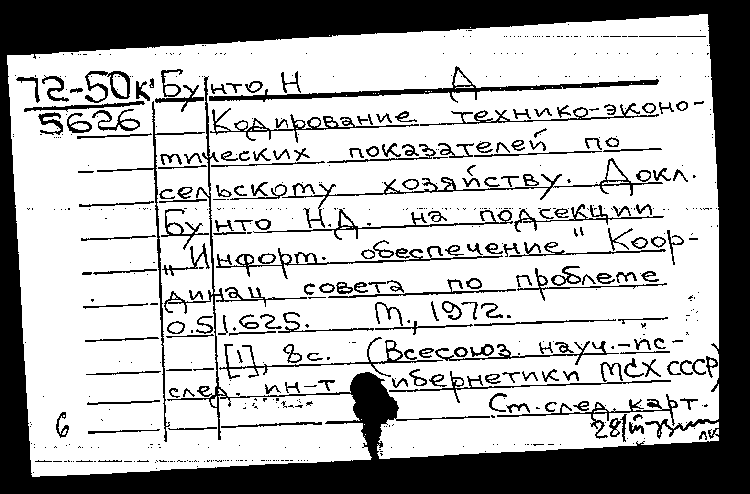 72-50к Бунто, Н Д
5626 Кодирование технико-эконо-
мических показателей по
сельскому хозяйству. Докл.
Бунто Н.Д. на подсекции
„Информ. обеспечение" Коор-
динац совета по проблеме
0.51.625. М., 1972.
[1], 8с. (Всесоюз. науч.-ис-
след. ин-т кибернетики МСХ СССР)
См. след. карт.
6 28/